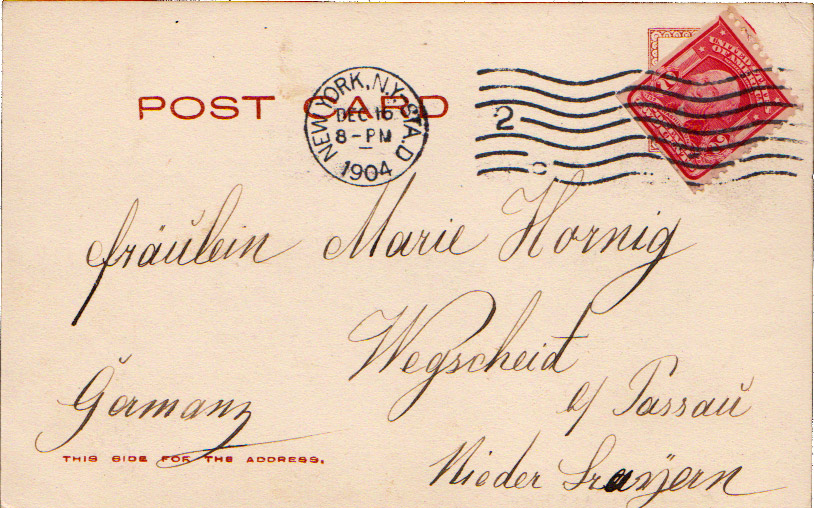 POST CARD
NEW YORK, N.Y. STA.D
DEC 16
8-PM
1904
2
UNITED STATES
OF AMERICA
2 2
Fräulein Marie Hornig
Wegscheid
b/ Passau
Germany
Nieder Bayern
THIS SIDE FOR THE ADDRESS.